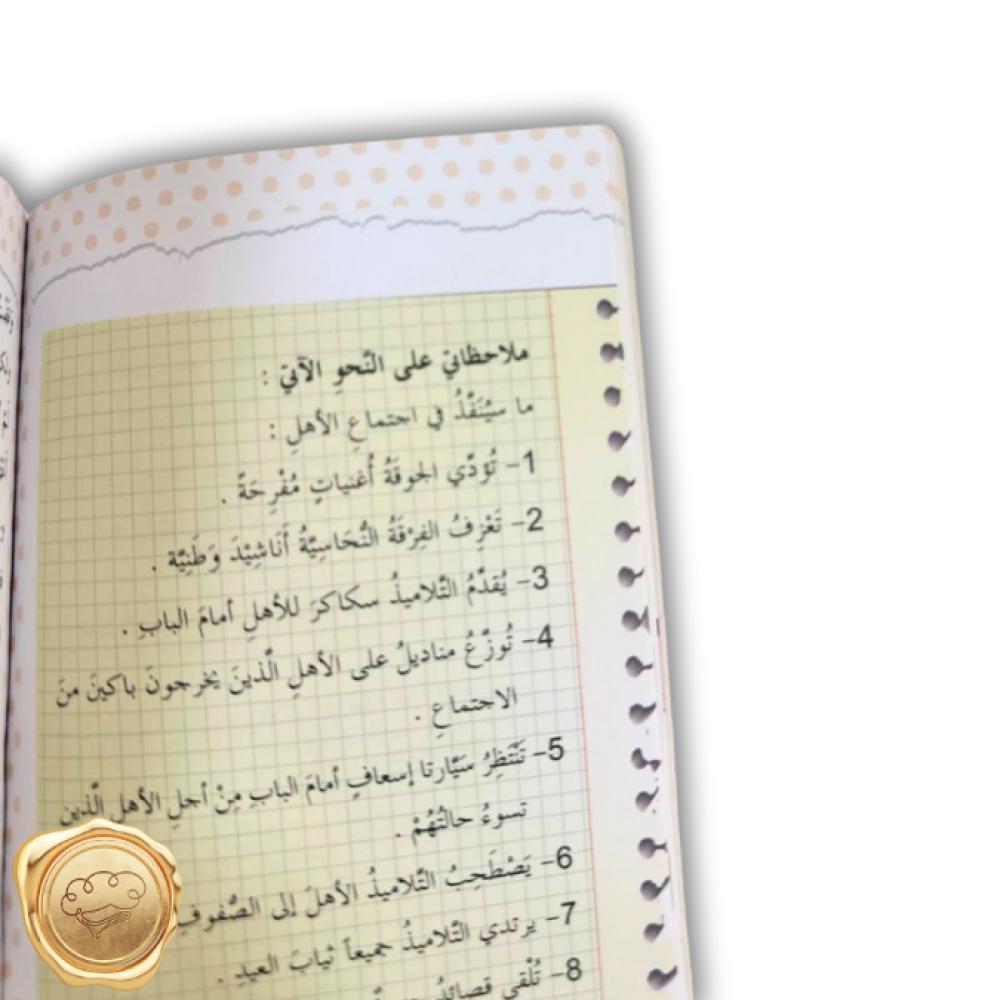 ملاحظاتي على النّحوِ الآتي :
ما سيُنَفَّذُ في اجتماعِ الأهلِ :
1- تُؤدّي الجوقةُ أُغنياتٍ مُفْرِحَةً .
2- تَعْزِفُ الفِرْقَةُ النُّحَاسِيَّةُ أَنَاشِيْدَ وَطَنِيَّة .
3- يُقدِّمُ التّلاميذُ سكاكرَ للأهلِ أمامَ البابِ .
4- تُوزّعُ مناديلُ على الأهلِ الّذينَ يخرجونَ باكينَ منَ
الاجتماعِ .
5- تَنْتَظِرُ سَيّارتا إسعافٍ أمامَ البابِ مِنْ أجلِ الأهلِ الّذين
تسوءُ حالتُهُمْ .
6- يَصْطَحِبُ التّلاميذُ الأهلَ إلى الصّفوفِ
7- يرتدي التّلاميذُ جميعاً ثيابَ العيدِ .
8- تُلْقى قصائدُ